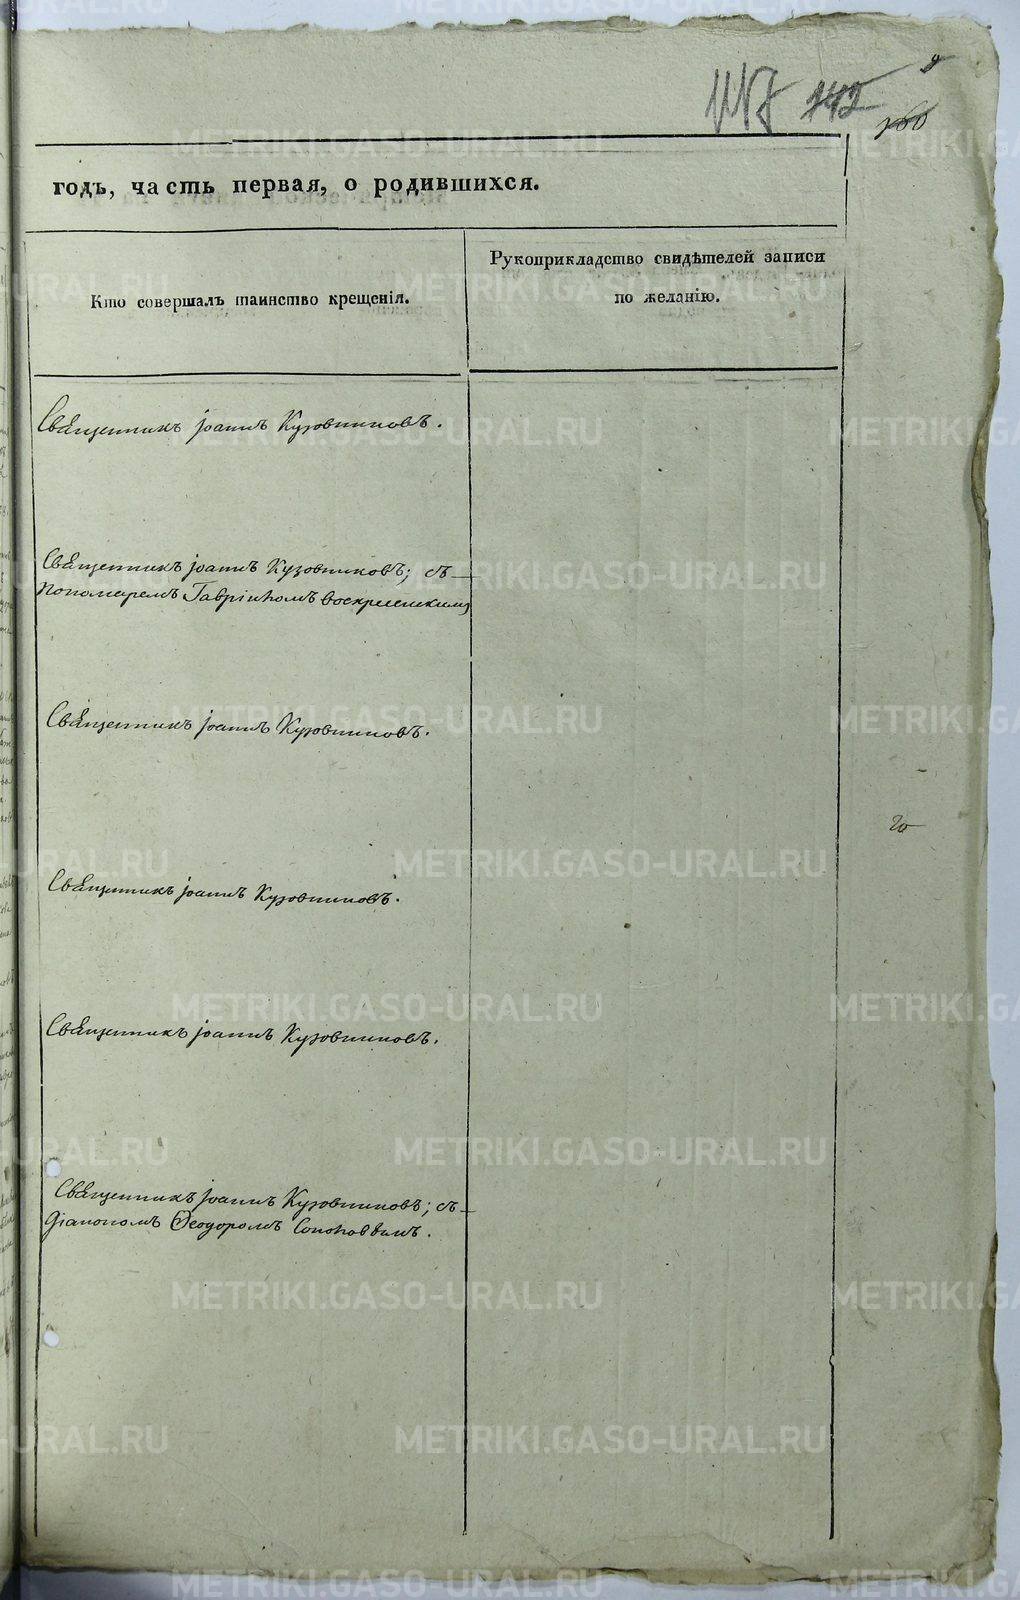 9
142
160
годъ, часть первая, о родившихся.
Кто совершалъ таинство крещенія.
Рукоприкладство свидѣтелей записи
по желанію.
Священникъ Іоаннъ Кузовниковъ.
Священникъ Іоаннъ Кузовниковъ; съ
Пономаремъ Гавріиломъ Воскресенскимъ
Священникъ Іоаннъ Кузовниковъ.
Священникъ Іоаннъ Кузовниковъ.
Священникъ Іоаннъ Кузовниковъ.
Священникъ Іоаннъ Кузовниковъ; съ
Діакономъ Ѳеодоромъ
METRIKI.GASO-URAL.RU